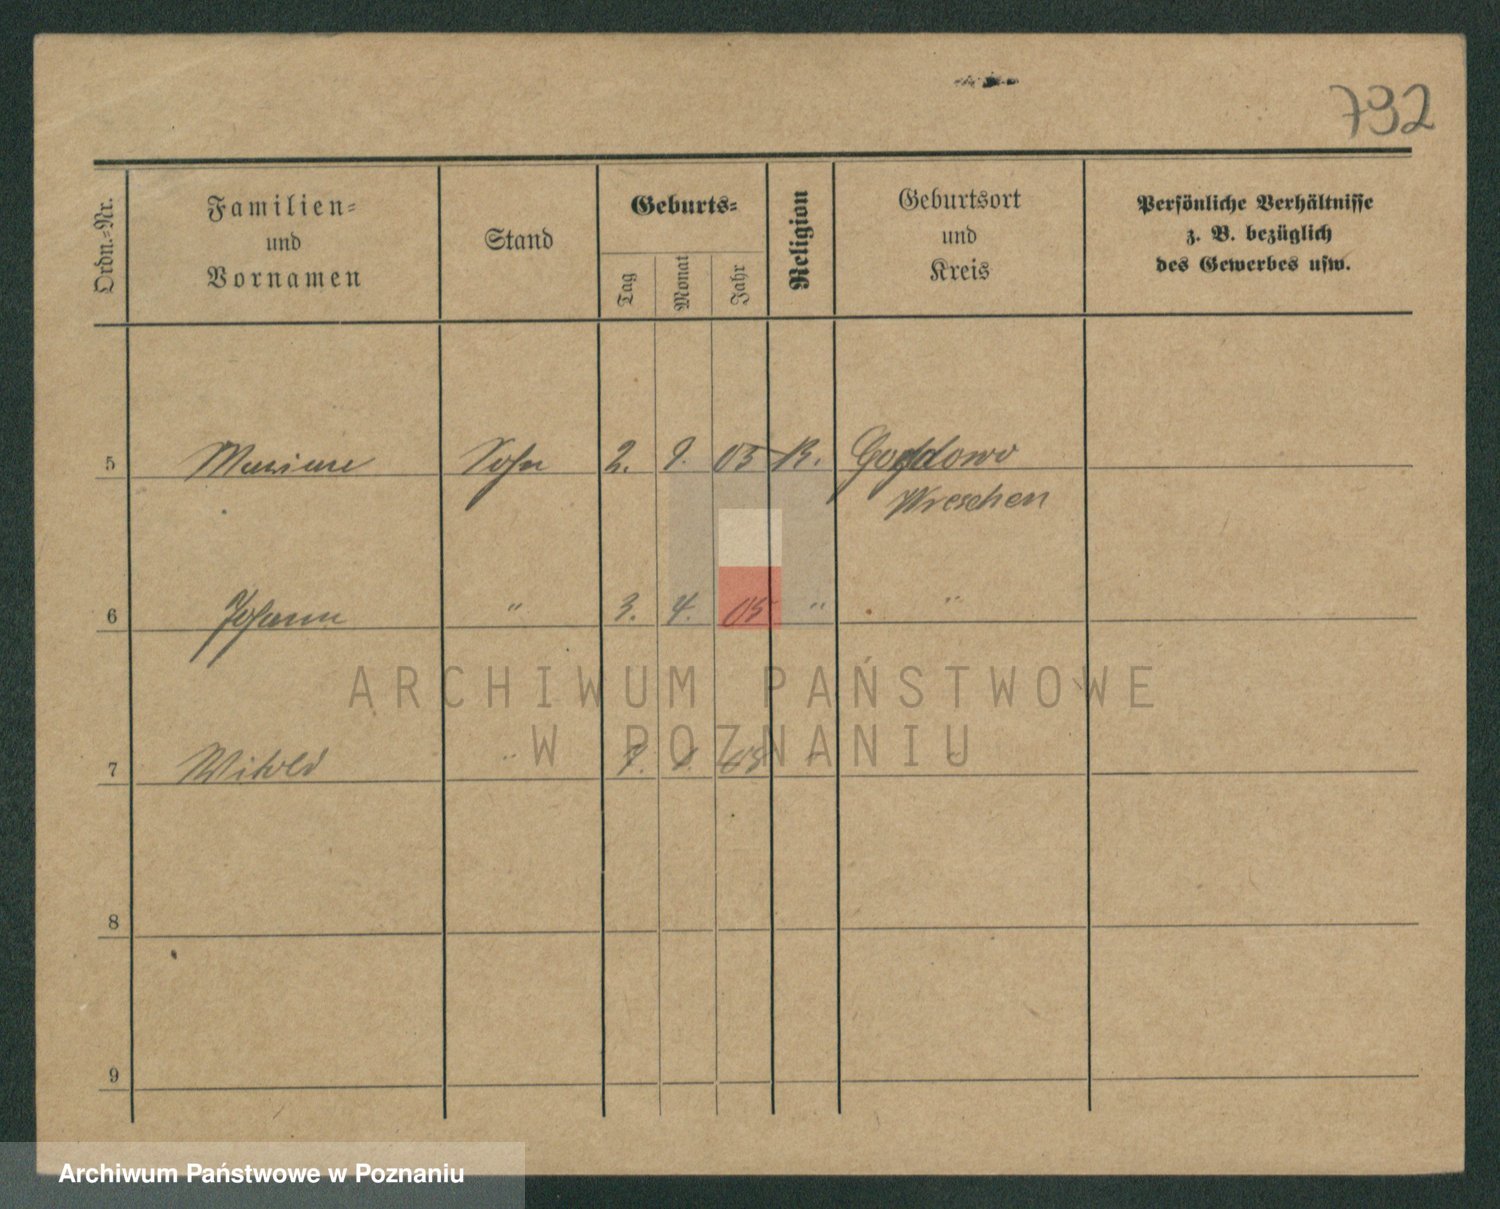 732
Ordn.-Nr.
Familien-
und
Vornamen
Stand
Geburts-
Tag
Monat
Jahr
Religion
Geburtsort
und
Kreis
Persönliche Verhältnisse
z. B. bezüglich
des Gewerbes usw.
5 Sohn 2. 9. 03 K.
Wreschen
6 Johann " 3. 4. 05 " "
ARCHIWUM PAŃSTWOWE
W POZNANIU
7 Witold "
8
9
Archiwum Państwowe w Poznaniu